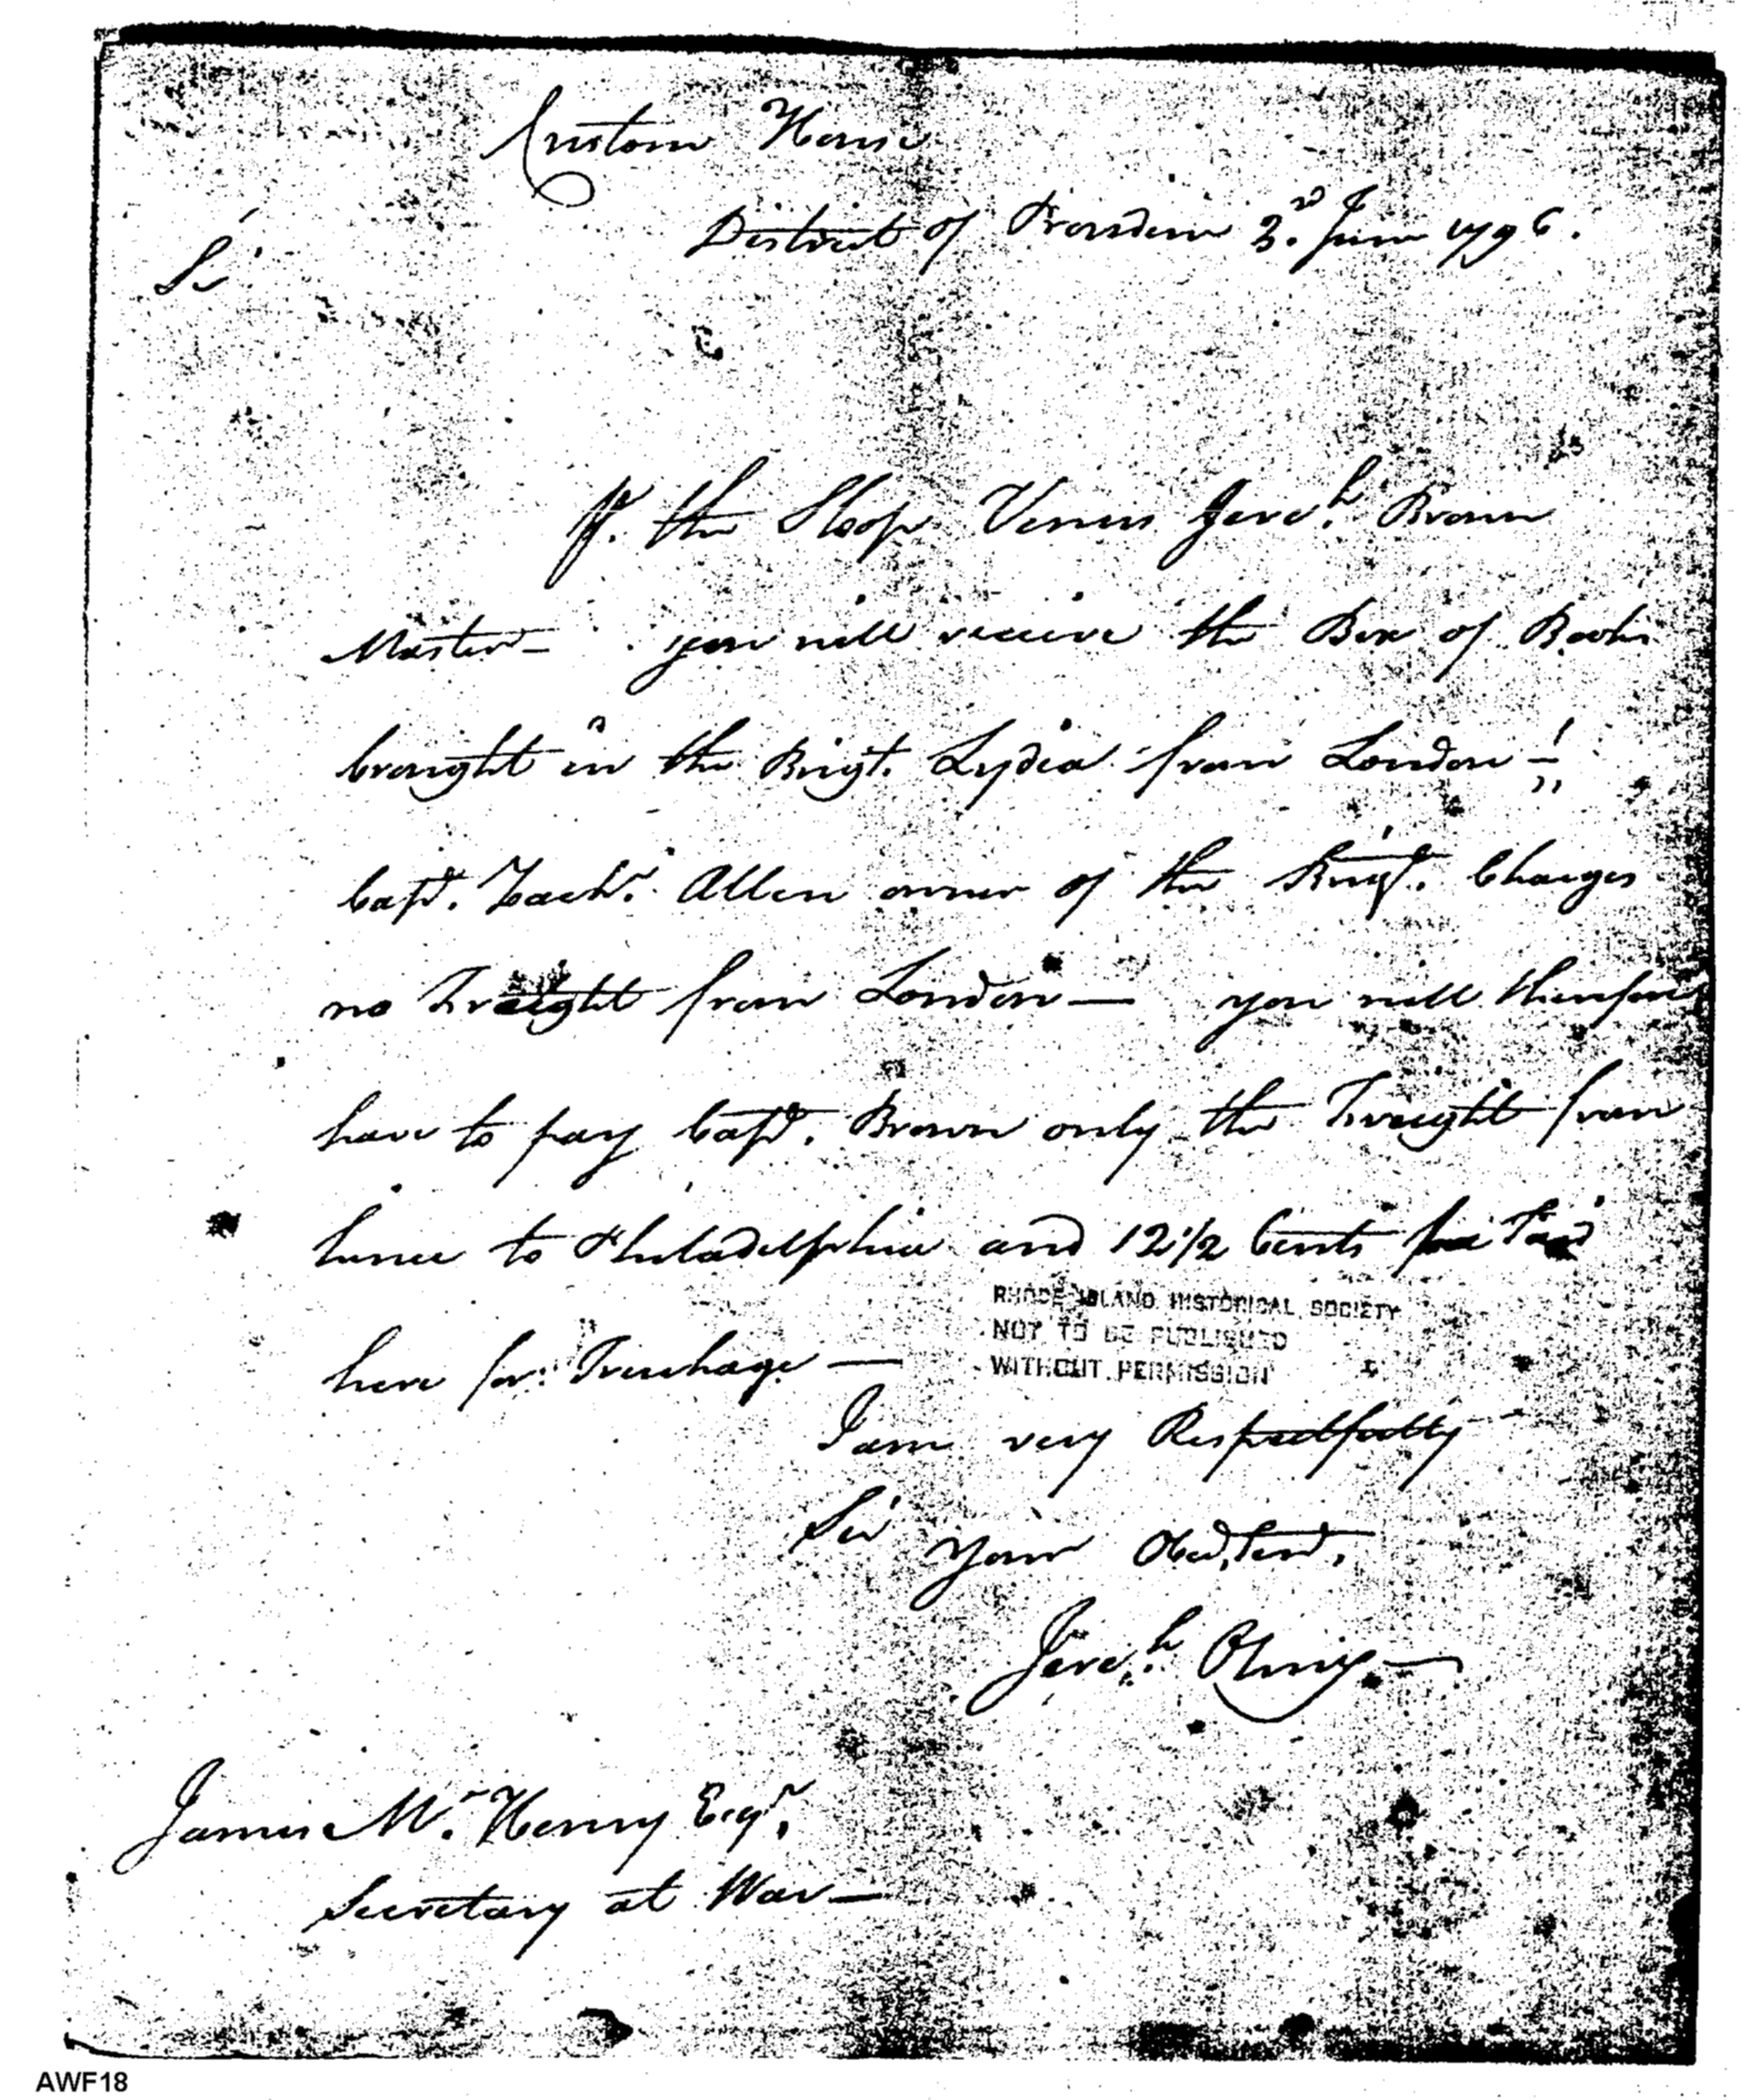 Custom House
District of Providence 3.rd June 1796.
Sir
P. the Sloop Venus Jere.h Brown
Master - you will receive the Box of Books
brought in the Brigt. Lydia from London -
Capt. Zachr. Allen owner of the Brigt. Charges
no Freight from London — you will therefore
have to pay Capt. Brown only the Freight from
hence to Philadelphia and 12 1/2 Cents Paid
RHODE ISLAND HISTORICAL SOCIETY
NOT TO BE PUBLISHED
WITHOUT PERMISSION
here for Truckage —
I am very Respectfully
Sir your Obed. Servt.
Jere.h Olney —
James Mc. Henry Esqr.
Secretary at War —
AWF18